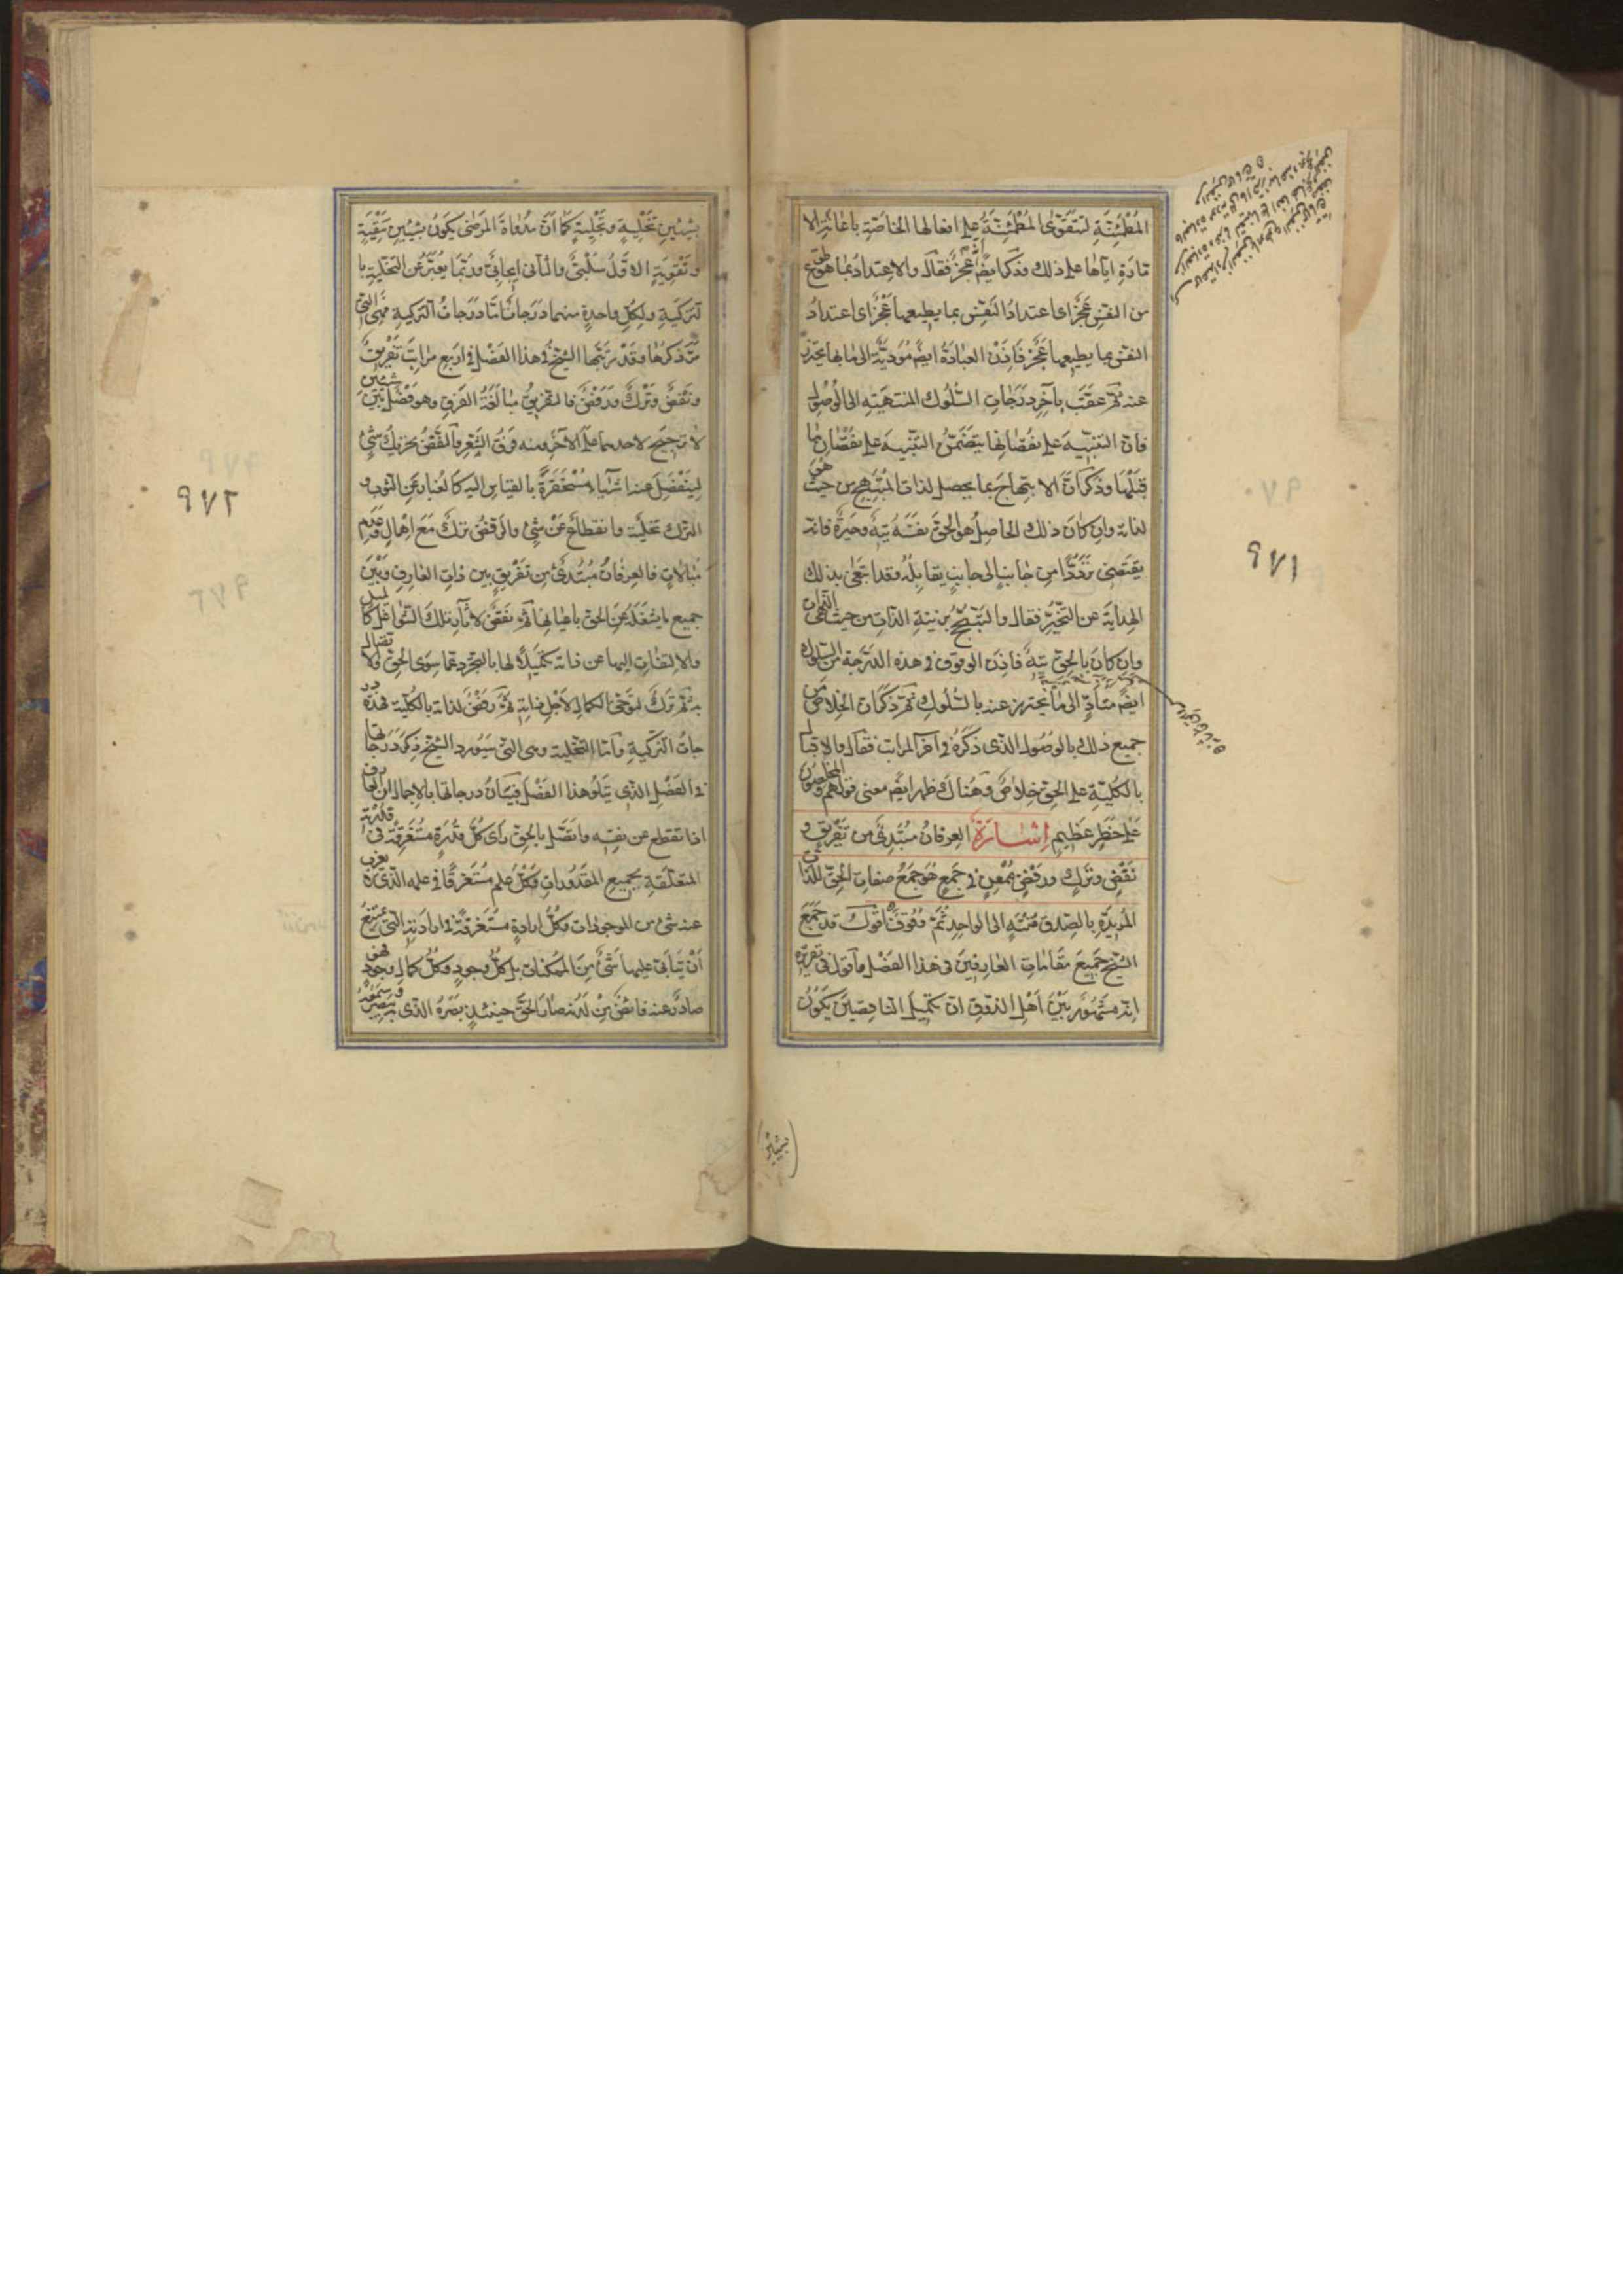 المطمئنة لتقوى المطمئنة على افعالها الخاصة باعانة الا
مارة اياها على ذلك وذكر ايضا انه عجز فقال والاعتداد بما هو طوع
من النفس عجز اى اعتداد النفس بما يطيعها عجز اى اعتداد
النفس بما يطيعها عجز فاذن العبادة ايضا مؤدية الى ما بها يحترز
عنه ثم عقب بآخر درجات السلوك المنتهية الى الوصول
فان التنبيه على نقصانها يتضمن التنبيه على نقصان ما
قبلها وذكر ان الابتهاج بما يحصل لذات المبتهج من حيث هو
لذاته وان كان ذلك الحاصل هو الحق نفسه تيه وحيرة فانه
يقتضى ترددا من جانب الى جانب يقابله وقد ابتغى بذلك
الهداية عن التحير فقال والتبجح بزينة الذات من حيث هى للذات
وان كان بالحق تيه فاذن الوقوف فى هذه الدرجة من السلوك
ايضا متأد الى ما يحترز عنه بالسلوك ثم ذكر ان الخلاص من
جميع ذلك بالوصول الذى ذكره فى آخر المراتب فقال والاقبال
بالكلية على الحق خلاص وهناك ظهر ايضا معنى قولهم والمخلصون
على خطر عظيم اشارة العرفان مبتدئ من تفريق و
نفض وترك ورفض ممعن فى جمع هو جمع صفات الحق للذات
المريدة بالصدق منته الى الواحد ثم وقوف اقول قد جمع
الشيخ جميع مقامات العارفين فى هذا الفصل واقول فى تقريره
انه مشهور بين اهل الذوق ان تكميل الناقصين يكون
٩٧١
بشيئين تخلية وتحلية كما ان مداواة المرضى يكون بشيئين تنقية
وتقوية الاول سلبى والثانى ايجابى وربما يعبر عن التخلية با
لتزكية ولكل واحدة منهما درجات اما درجات التزكية فهى التى
مر ذكرها وقد رتبها الشيخ فى هذا الفصل فى اربع مراتب تفريق
ونفض وترك ورفض فالتفريق مبالغة الفرق وهو فصل بين شيئين
لا ترجيح لاحدهما على الآخر ومنه فرق الشعر والنفض تحريك شئ
لينفصل عنه اشياء مستحقرة بالقياس اليه كالغبار عن الثوب و
الترك تخلية وانقطاع عن شئ والرفض ترك مع اهمال وعدم
مبالات فالعرفان مبتدئ من تفريق بين ذات العارف وبين
جميع ما يشغله عن الحق باعيانها ثم نفض لآثار تلك الشواغل كالميل
والالتفات اليها عن ذاته تكميلا لها بالتجرد عما سوى الحق والاتصال
به ثم ترك لتوخى الكمال لاجل ذاته ثم رفض لذاته بالكلية فهذه در
جات التزكية واما التحلية وهى التى سيورد الشيخ ذكر درجاتها
فى الفصل الذى يتلو هذا الفصل فبيان درجاتها بالاجمال ان العارف
اذا انقطع عن نفسه واتصل بالحق رأى كل قدرة مستغرقة فى قدرته
المتعلقة بجميع المقدورات وكل علم مستغرقا فى علمه الذى لا يعزب
عنه شئ من الموجودات وكل ارادة مستغرقة فى ارادته التى يمتنع
ان يتأبى عليها شئ من الممكنات بل كل وجود وكل كمال وجود فهو
صادر عنه فائض من لدنه صار الحق حينئذ بصره الذى به يبصر وسمعه
٩٧٢